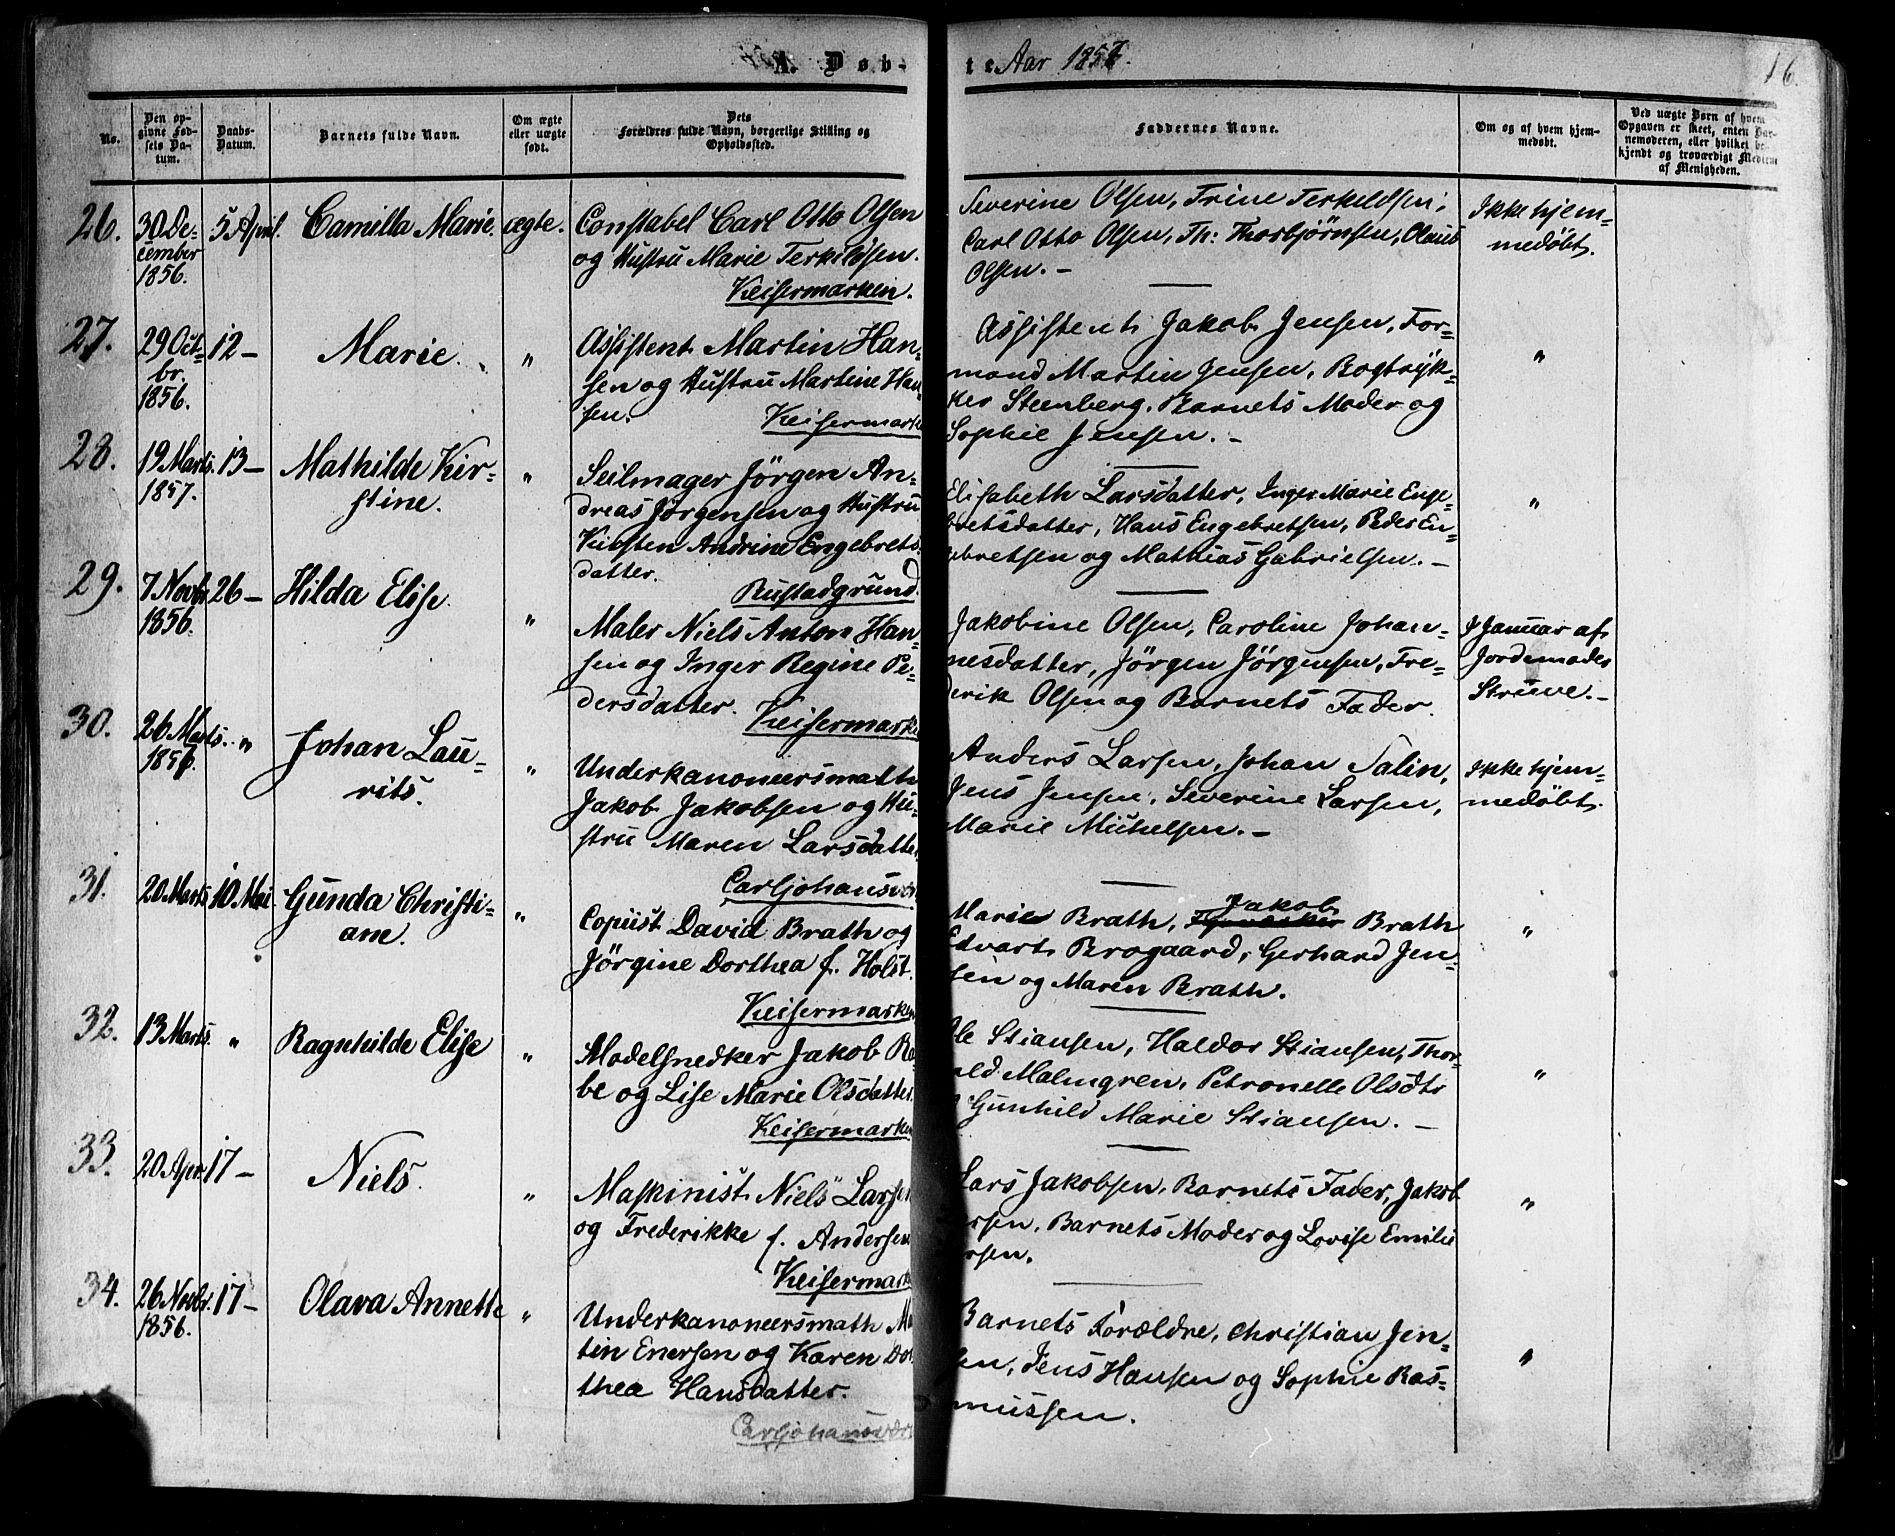 A. Døb-
te Aar 1857.
16.
No.
Den op-
givne Fød-
sels Da-
tum.
Daabs-
Datum.
Barnets fulde Navn.
Om ægte
eller uægte
født.
Dets
Forældres fulde Navn, borgerlige Stilling og
Opholdssted.
Faddernes Navne.
Om og af hvem hjem-
medøbt.
Ved uægte Børn af hvem
Opgaven er skeet, enten Bar-
nemoderen, eller hvilket be-
kjendt og troværdigt Medlem
af Menigheden.
26.
30 De-
cember
1856.
5 April.
Camilla Marie.
ægte.
Constabel Carl Otto Olsen
og Hustru Marie Terkildsen.
Keisermarken.
Severine Olsen, Trine Terkeldsen,
Carl Otto Olsen, Th: Thorbjørnsen, Claus
Olsen. –
Ikke hjem-
medøbt.
27.
29 Oct-
br.
1856.
12 –
Marie.
"
Assistent Martin Han-
sen og Hustru Martine Han
sen.
Keisermarke
Assistent Jakob Jensen, For-
mand Martin Jensen, Bogtryk-
ker Steenberg, Barnets Moder og
Sophie Jensen. –
"
28.
19 Marts
1857.
13 –
Mathilde Kir-
stine.
"
Seilmager Jörgen An-
dreas Jörgensen og Hustru
Kirsten Andrine Engebrets
datter.
Rustadgrund.
Elisabeth Larsdatter, Inger Marie Enge-
bretsdatter, Hans Engebretsen, Peder En-
gebretsen og Mathias Gabrielsen. –
"
29.
7 Novbr
1856.
26 –
Hilda Elise.
"
Maler Niels Anton Han-
sen og Inger Regine Pe-
dersdatter.
Keisermarke
Jakobine Olsen, Caroline Johan-
nesdatter, Jörgen Jörgensen, Fre-
derik Olsen og Barnets Fader.
I Januar af
Jordemoder
Struve. –
30.
26 Marts.
1857.
"
Johan Lau-
rits.
"
Underkanoneersmath
Jakob Jakobsen og Hu-
stru Maren Larsdatter
Carljohansvær
Anders Larsen, Johan Salin,
Jens Jensen, Severine Larsen,
Marie Mickelsen. –
Ikke hjem-
medøbt.
31.
20 Marts
10 Mai.
Gunda Christi-
ane.
"
Copiist David Brath og
Jörgine Dorthea f. Holst.
Keisermarken
Jakob
Marie Brath, Brath
Edvart Brogaard, Gerhard Jen-
sen og Maren Brath.
"
32.
13 Marts.
"
Ragnhilde Elise
"
Modelsnedker Jakob Ra
be og Lise Marie Olsdatter.
Keisermarken
Ole Stiansen, Haldor Stiansen, Thor-
vald Malmgren, Petronelle Olsdtr
Gunhild Marie Stiansen. –
"
33.
20 Apr.
17 –
Niels.
"
Maskinist Niels Larsen
og Frederikke f. Andersen
Keisermark
Lars Jakobsen, Barnets Fader, Jakob
rsen, Barnets Moder og Lovise Emilie
rsen.
"
34.
26 Novbr.
1856.
17 –
Olava Annette
"
Underkanoneersmath Ma
tin Enersen og Karen Dor
thea Hansdatter.
Carljohansvær
Barnets Forældre, Christian Jen-
sen, Jens Hansen og Sophie Ras-
mussen.
"